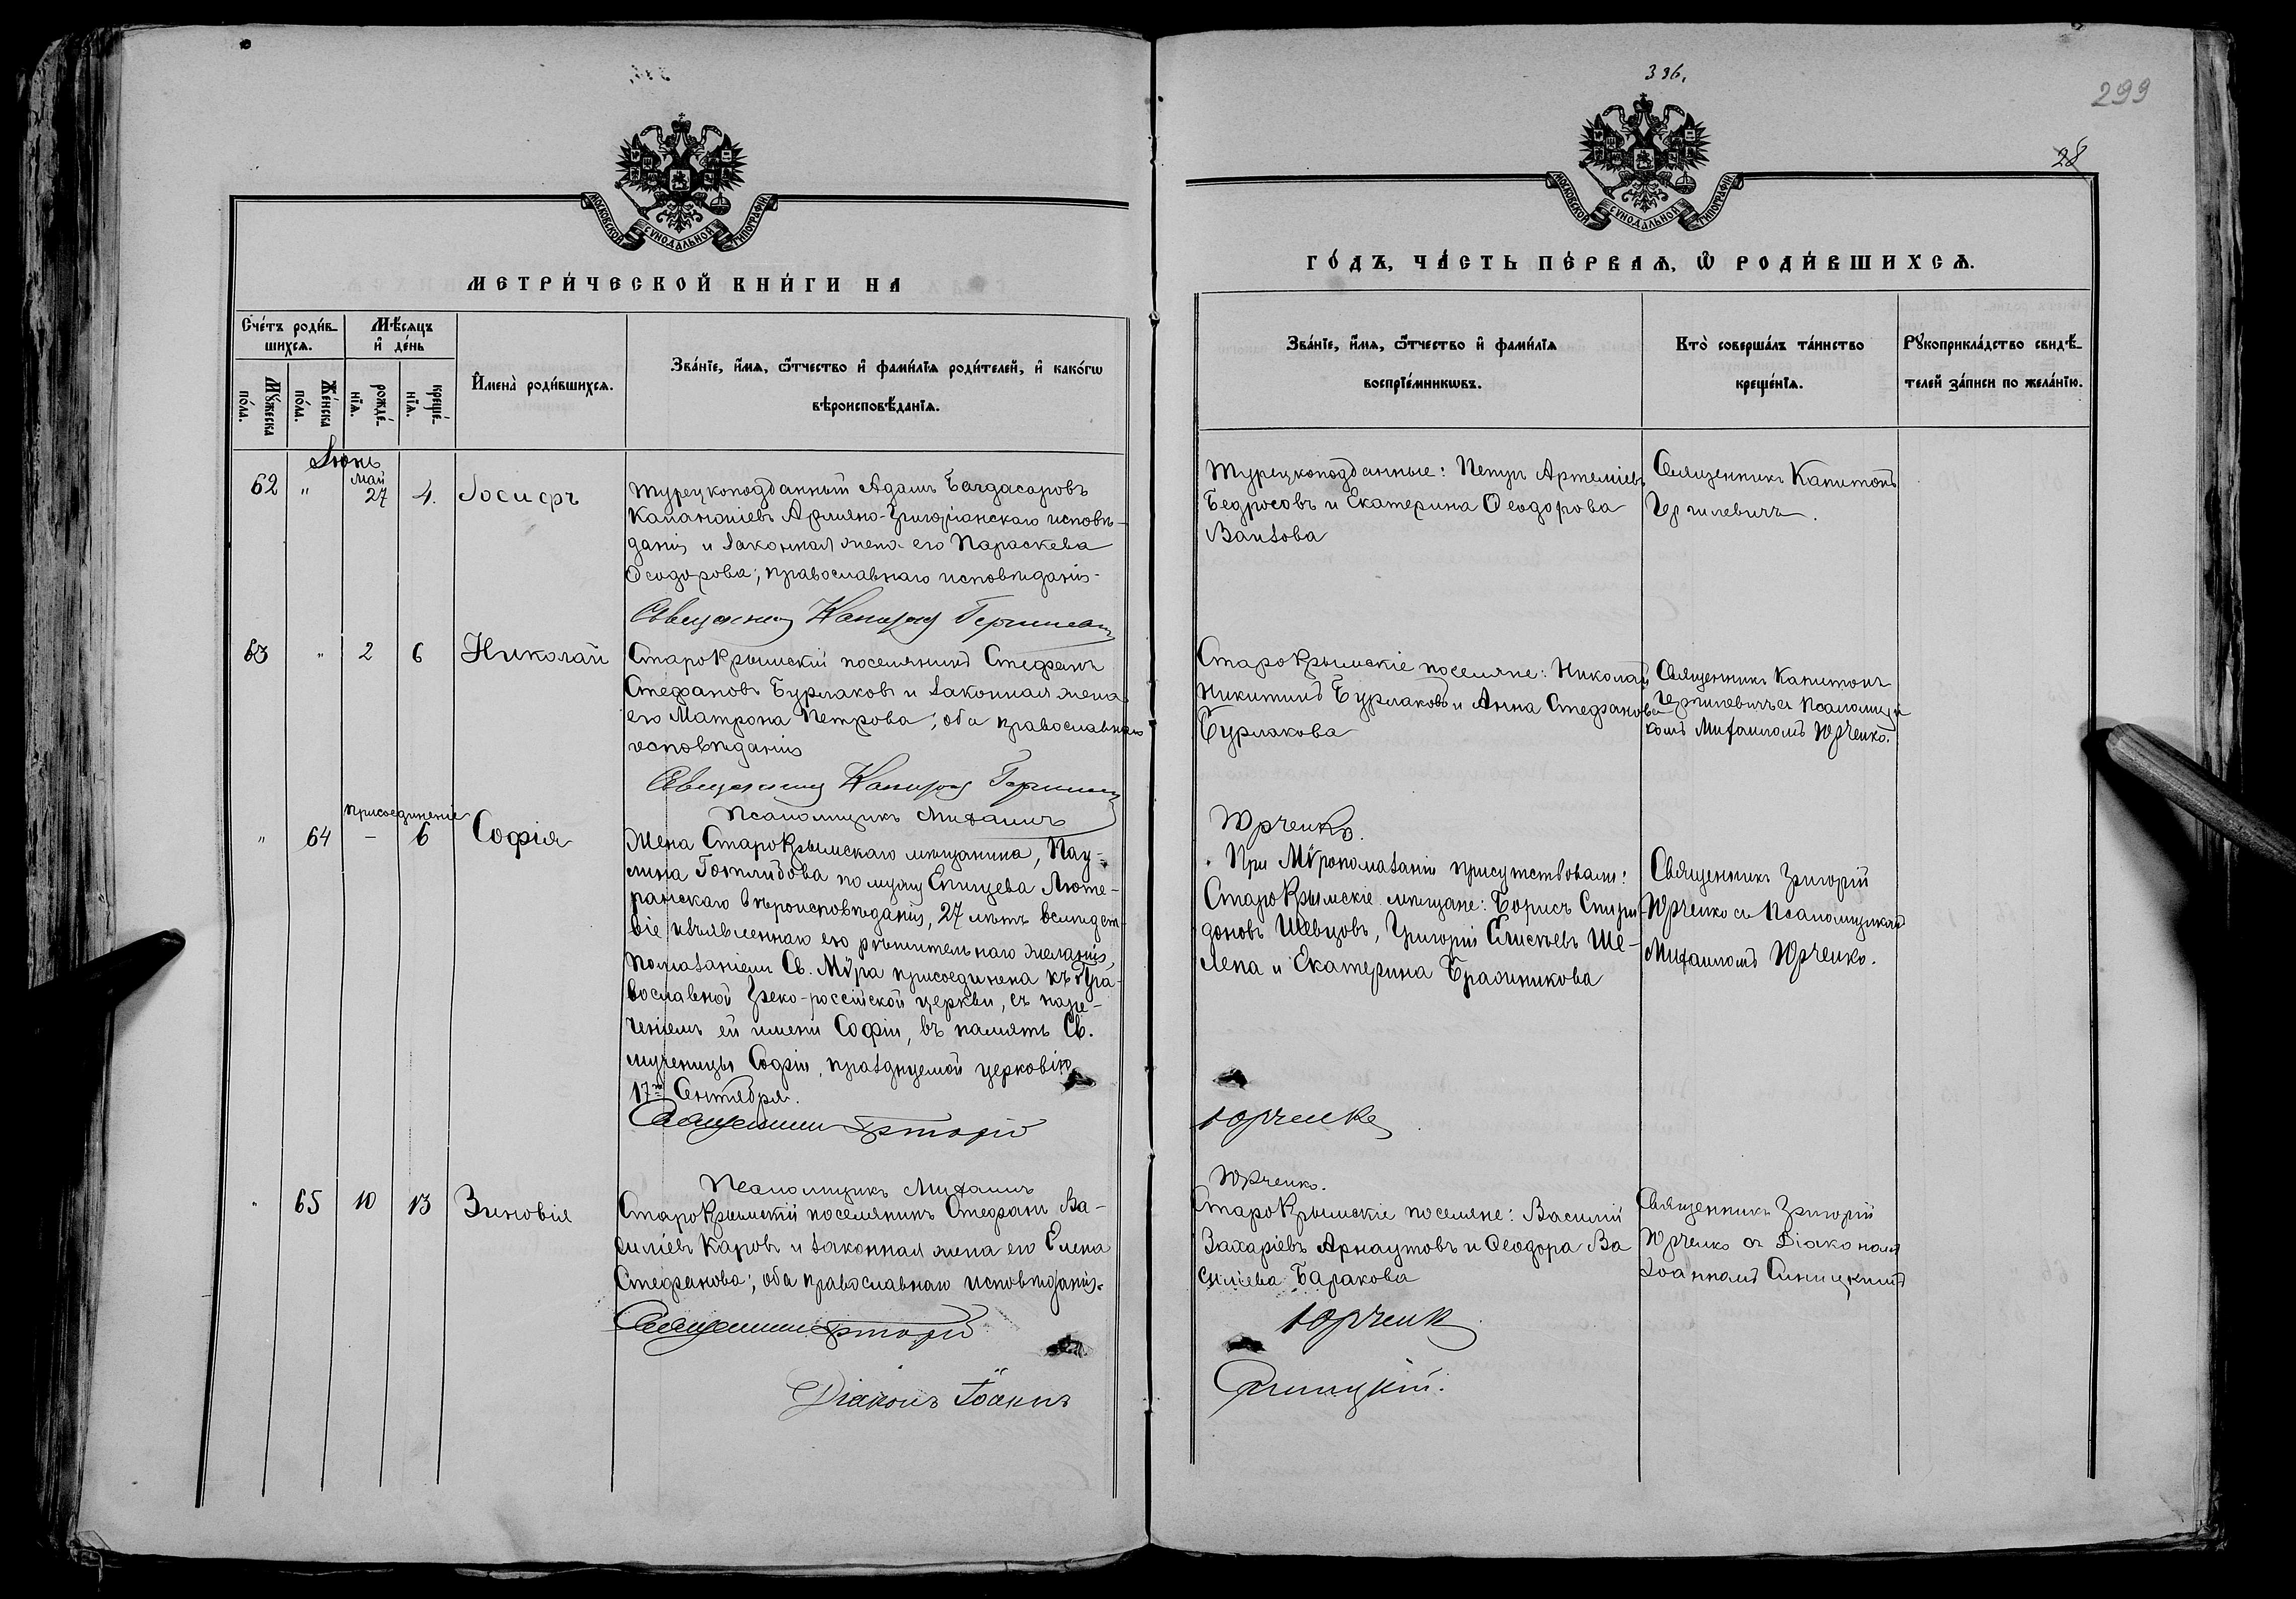 336.
299
28
МОСКОВСКОЙ СУНОДАЛЬНОЙ ТИПОГРАФІИ
МОСКОВСКОЙ СУНОДАЛЬНОЙ ТИПОГРАФІИ
МЕТРИ́ЧЕСКОЙ КНИ́ГИ НА
ГО́ДЪ, ЧА́СТЬ ПЕ́РВАѦ, Ѡ҆ РОДИ́ВШИХСѦ.
Сче́тъ роди́в-
шихсѧ.
Мѣ́сѧцъ
и҆ де́нь
Мꙋ́жеска
по́ла.
Же́нска
по́ла.
рожде́-
нїѧ.
креще́-
нїѧ.
И҆мена̀ роди́вшихсѧ.
Зва́нїе, и҆́мѧ, ѻ҆́тчество и҆ фами́лїѧ роди́телей, и҆ како́гѡ
вѣроисповѣ́данїѧ.
Зва́нїе, и҆́мѧ, ѻ҆́тчество и҆ фами́лїѧ
воспрїе́мникѡвъ.
Кто̀ соверша́лъ та́инство
креще́нїѧ.
Рꙋкоприкла́дство свидѣ́-
телей за́писи по жела́нїю.
Іюнь
62 " Май 27 4. Іосифъ
Турецкоподданный Адамъ Багдасаровъ
Армяно-Григоріанскаго исповѣ-
данія и законная жена его Параскева
Ѳеодорова; православнаго исповѣданія.
Священникъ Капитонъ
Турецкоподданные: Петръ Артеміевъ
Бедросовъ и Екатерина Ѳеодорова
Ваизова
Священникъ Капитонъ
63 " 2 6 Николай
Старокрымскій поселянинъ Стефанъ
Стефановъ Бурлаковъ и законная жена
его Матрона Петрова; оба православнаго
исповѣданія
Священникъ Капитонъ
Псаломщикъ Михаилъ
Старокрымскіе поселяне: Николай
Никитинъ Бурлаковъ и Анна Стефанова
Бурлакова
Юрченко.
Священникъ Капитонъ
съ Псаломщи-
комъ Михаиломъ Юрченко.
Присоединеніе
" 64 — 6 Софія
Жена Старокрымскаго мѣщанина, Пау-
лина Готлибова по мужу Епищева Люте-
ранскаго вѣроисповѣданія, 27 лѣтъ вслѣдст-
віе изъявленнаго ею рѣшительнаго желанія,
помазаніемъ Св. Мѵра присоединена къ Пра-
вославной Греко-россійской церкви, съ наре-
ченіемъ ей имени Софіи, въ память Св.
мученицы Софіи, празднуемой церковію
17го Сентября.
Священникъ Григорій
Псаломщикъ Михаилъ
При Мѵропомазаніи присутствовали:
Старокрымскіе мѣщане: Борисъ Спири-
доновъ Шевцовъ, Григорій Елисѣевъ Ше-
лепа и Екатерина Брасникова
Юрченко
Юрченко.
Священникъ Григорій
Юрченко съ Псаломщикомъ
Михаиломъ Юрченко.
" 65 10 13 Зиновія
Старокрымскій поселянинъ Стефанъ Ва-
силіевъ Каровъ и законная жена его Елена
Стефанова; оба православнаго исповѣданія.
Священникъ Григорій
Діаконъ Іоаннъ
Старокрымскіе поселяне: Василій
Захаріевъ Арнаутовъ и Ѳеодора Ва
силіева Баракова
Юрченко
Синицкій.
Священникъ Григорій
Юрченко съ Діакономъ
Іоанномъ Синицкимъ